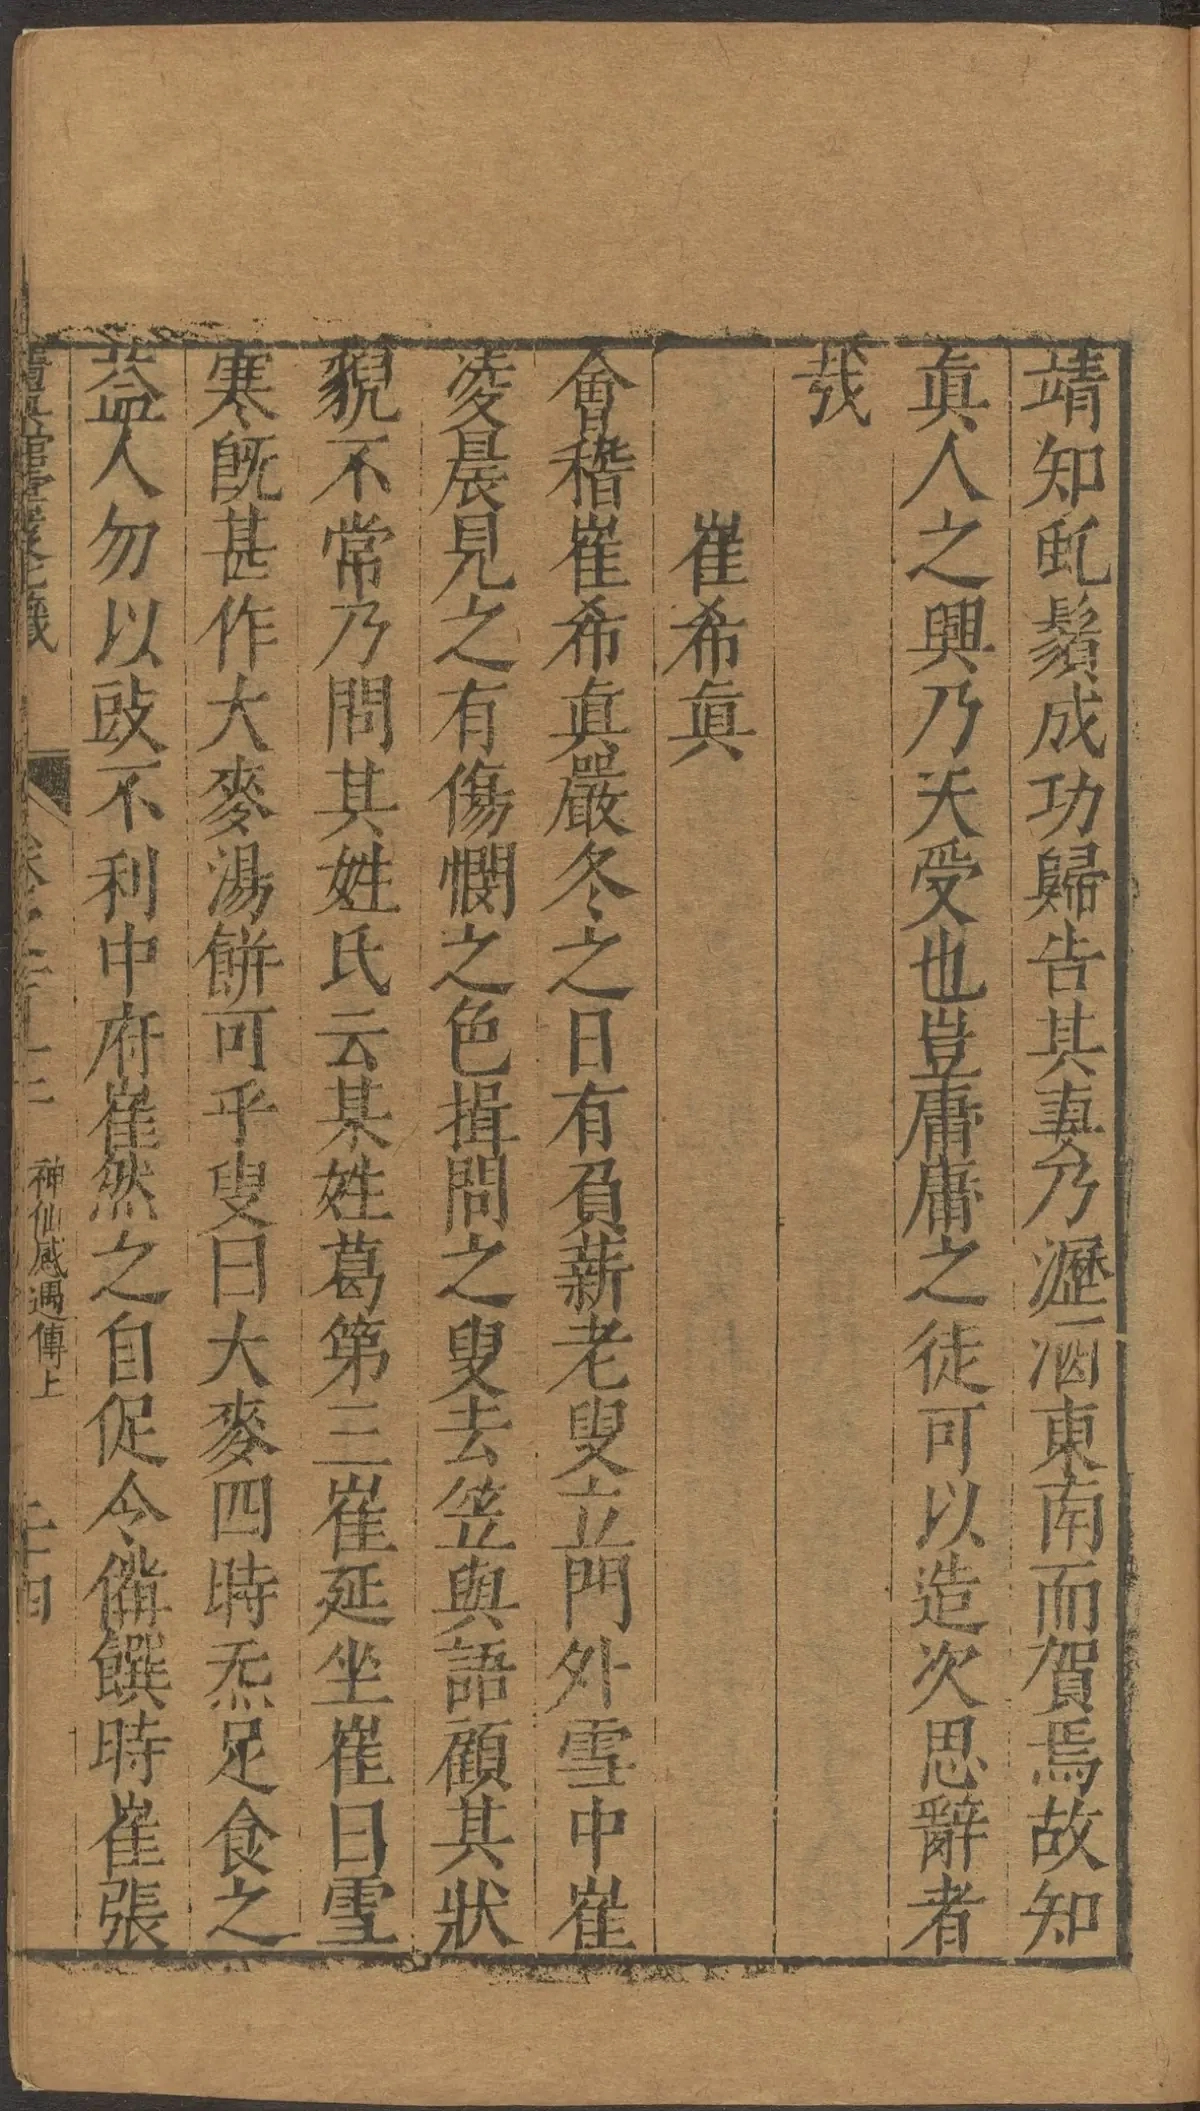 靖知虬鬚成功歸告其妻乃瀝酒東南而賀焉故知
眞人之興乃天受也豈庸庸之徒可以造次思辭者
㢤
崔希眞
會稽崔希眞嚴冬之日有負薪老叟立門外雪中崔
凌晨見之有傷憫之色揖問之叟去笠與語顧其狀
貌不常乃問其姓氏云某姓葛第三崔延坐崔曰雪
寒旣甚作大麥湯餅可乎叟曰大麥四時炁足食之
益人勿以豉不利中府崔然之自促令備饌時崔張
神仙感遇傳上